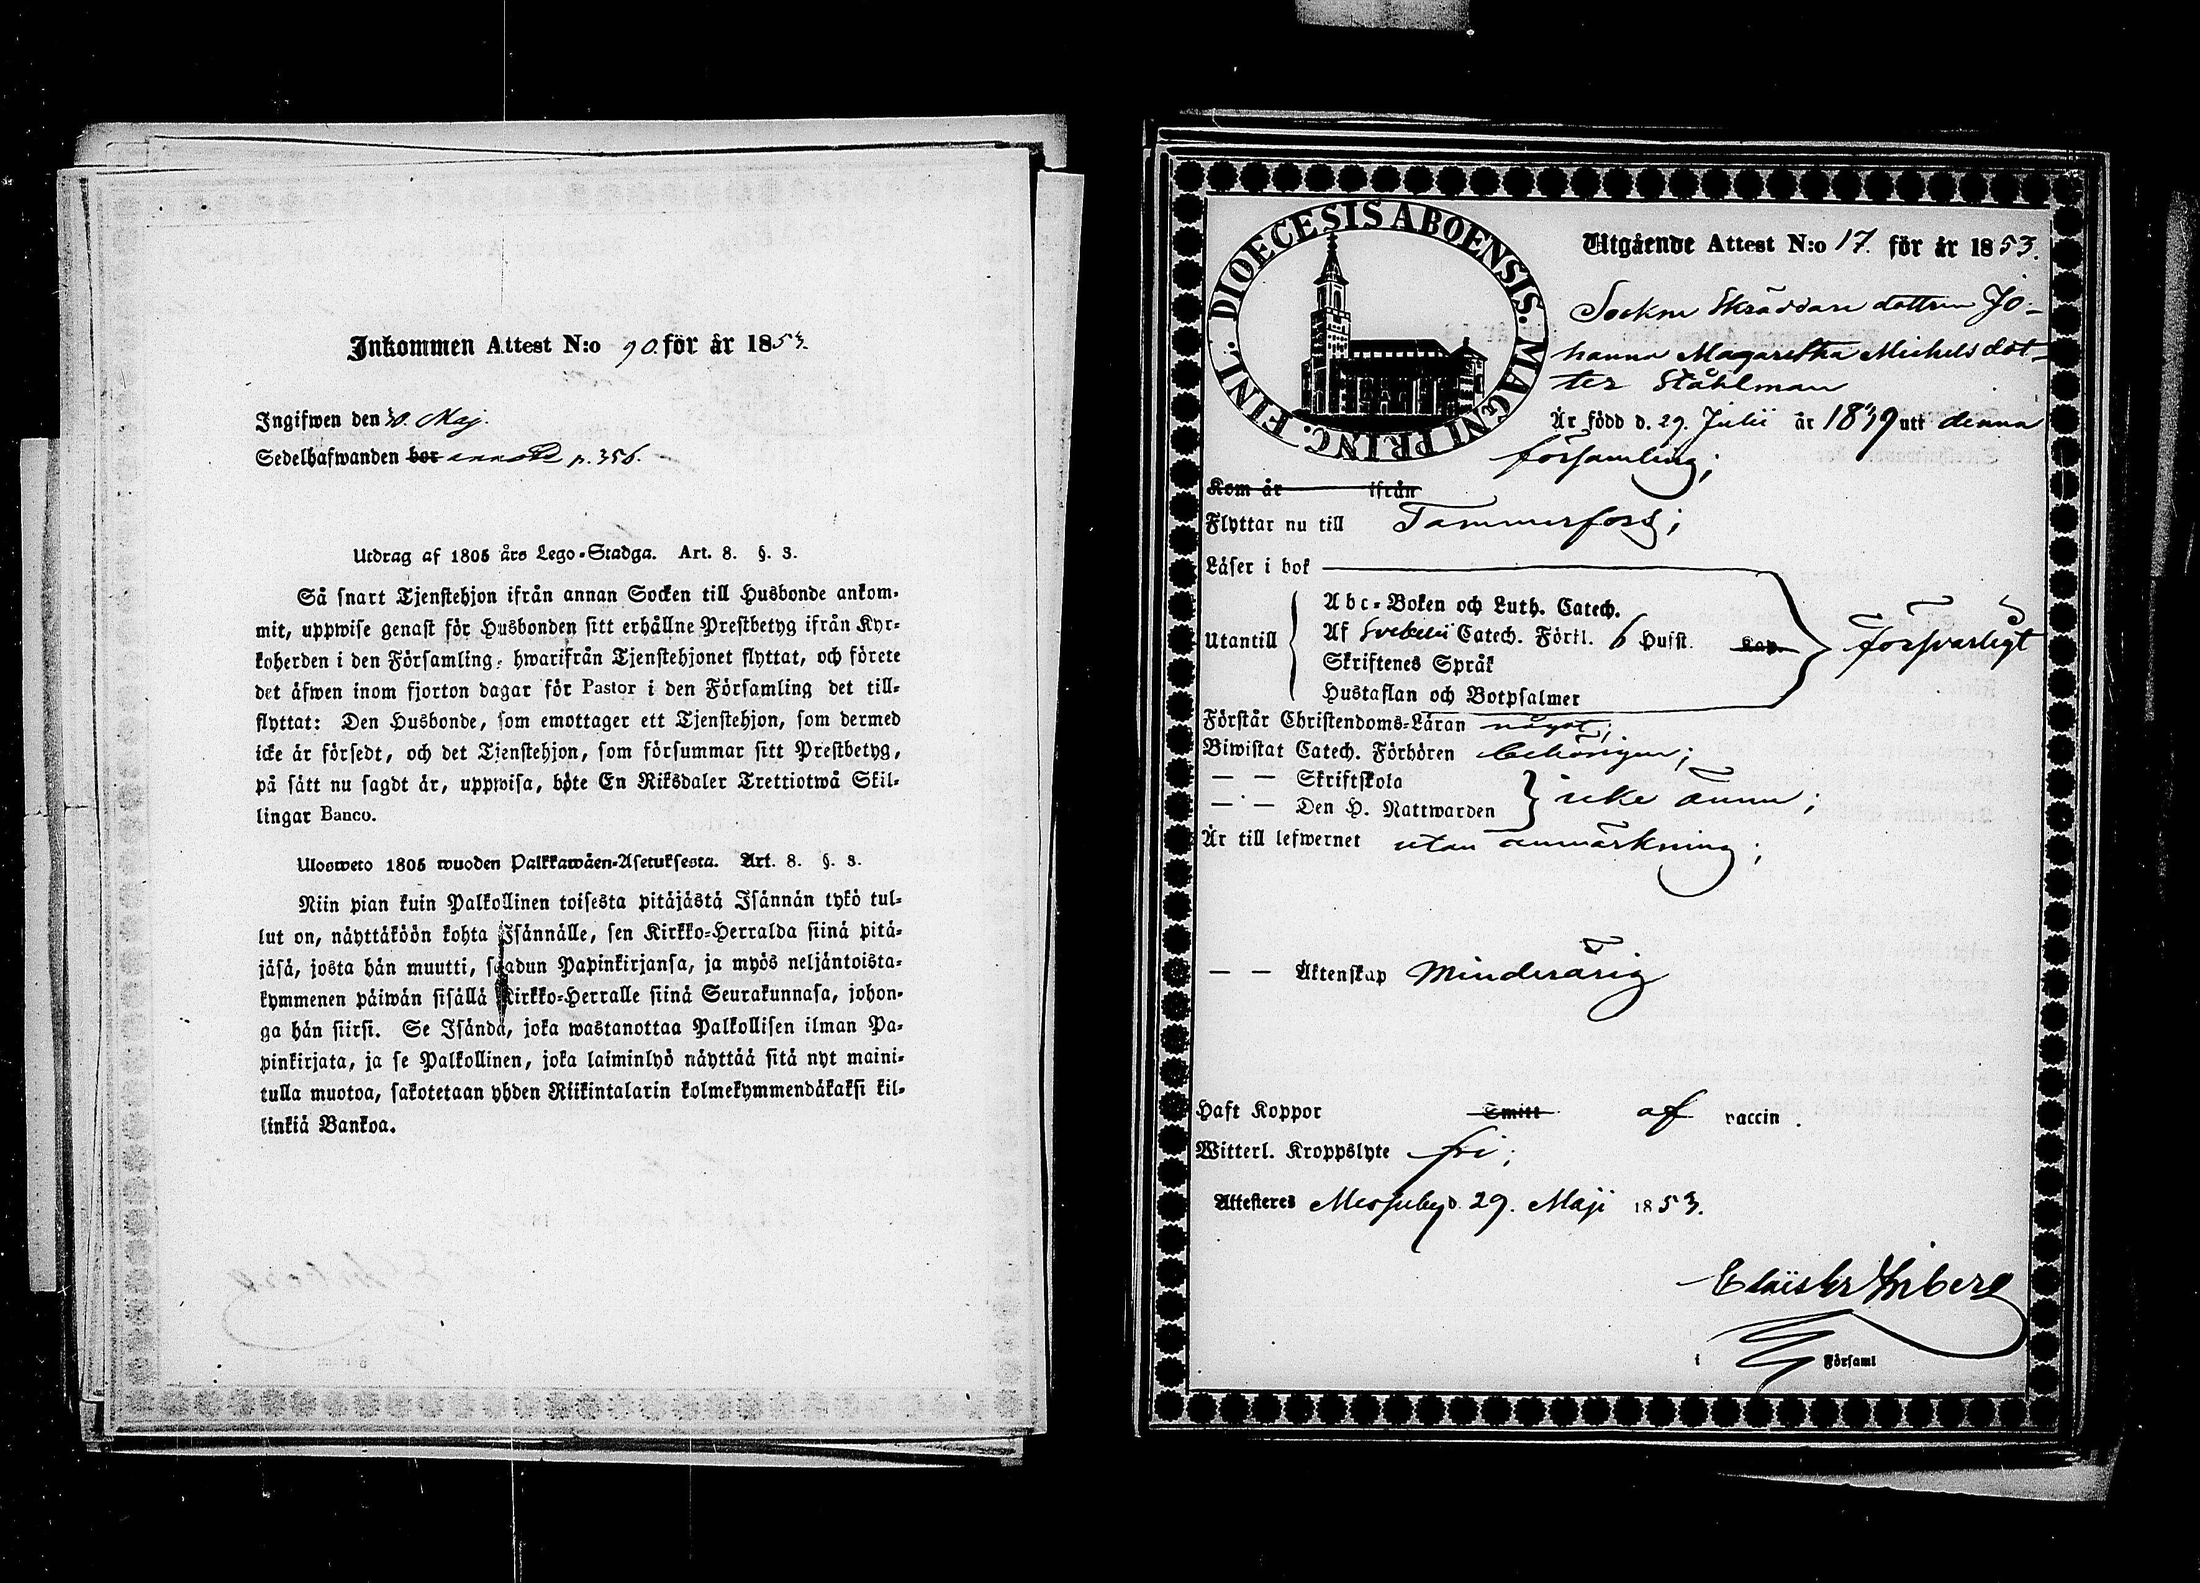 Inkommen Attest N:o 90. för år 1853.
Ingifwen den 30. Maj.
Sedelhafwanden bor p. 356.
Utdrag af 1805 års Lego-Stadga. Art. 8. §. 3.
Så snart Tjenstehjon ifrån annan Socken till Husbonde ankom-
mit, uppwise genast för Husbonden sitt erhållne Prestbetyg ifrån Kyr-
koherden i den Församling, hwarifrån Tjenstehjonet flyttat, och förete
det äfwen inom fjorton dagar för Pastor i den Församling det till-
flyttat: Den Husbonde, som emottager ett Tjenstehjon, som dermed
icke är försedt, och det Tjenstehjon, som försummar sitt Prestbetyg,
på sätt nu sagdt är, uppwisa, böte En Riksdaler Trettiotwå Skil-
lingar Banco.
Ulosweto 1805 wuoden Palkkawäen-Asetuksesta. Art. 8. §. 3.
Niin pian kuin Palkollinen toisesta pitäjästä Isännän tykö tul-
lut on, näyttäköön kohta Isännälle, sen Kirkko-Herralda siinä pitä-
jäsä, josta hän muutti, saadun Papinkirjansa, ja myös neljäntoista-
kymmenen päiwän sisällä Kirkko-Herralle siinä Seurakunnasa, johon-
ga hän siirsi. Se Isändä, joka wastanottaa Palkollisen ilman Pa-
pinkirjata, ja se Palkollinen, joka laiminlyö näyttää sitä nyt maini-
tulla muotoa, sakotetaan yhden Riikintalarin kolmekymmendäkaksi kil-
linkiä Bankoa.
DIOECESIS ABOENSIS. MAGNI PRINC. FINL.
Utgående Attest N:o 17. för år 1853.
Sockne Skräddare dottren Jo-
hanna Magaretha Michelsdot-
ter Ståhlman
Är född d. 29. Julii år 1839 uti denna
församling;
Kom år ifrån
Flyttar nu till Tammerfors;
Läser i bok
Utantill
Abc-Boken och Luth. Catech.
Af Svebelii Catech. Förkl. 6 Hufst. Kap.
Skriftenes Språk
Hustaflan och Botpsalmer
försvarligt
Förstår Christendoms-Läran något;
Biwistat Catech. Förhören behörigen;
— — Skriftskola
— — Den H. Nattwarden
icke ännu;
Är till lefwernet utan anmärkning;
— — Äktenskap Minderårig
Haft Koppor Smitt af vaccin.
Witterl. Kroppslyte fri;
Attesteres Messuby d. 29. Maji 1853.
i Församl